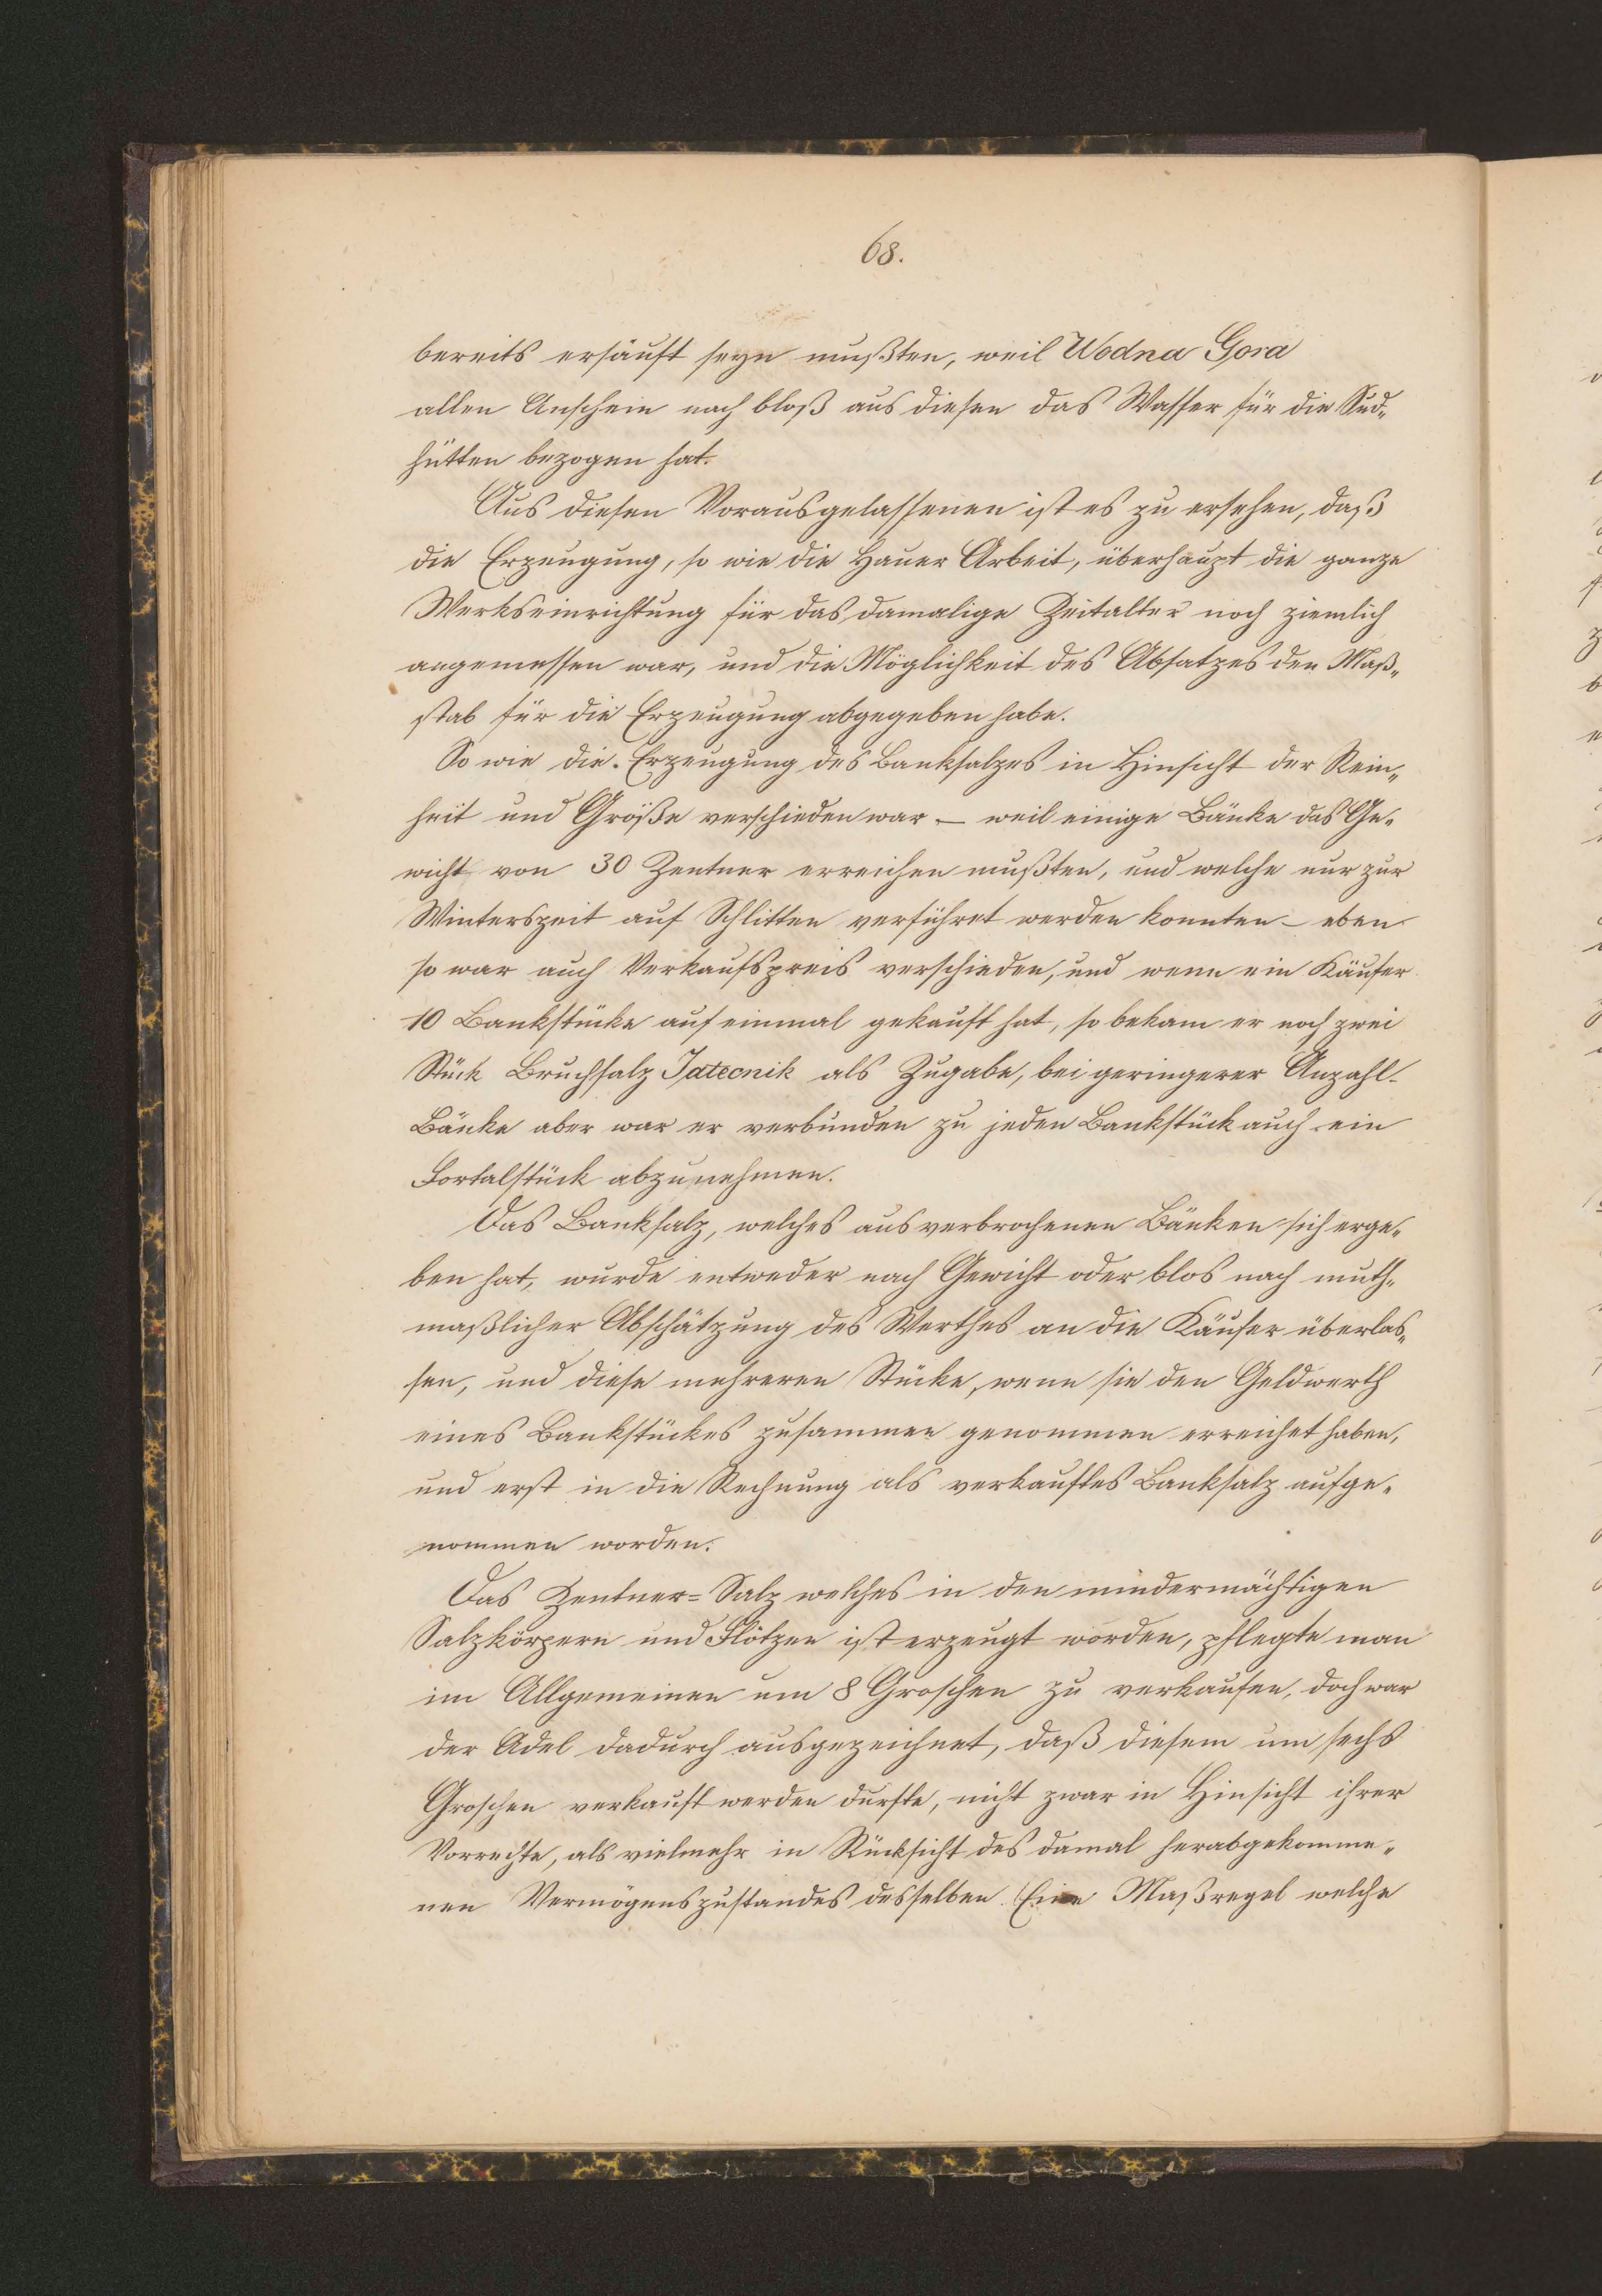 68.
bereits ersäuft seyn mußten, weil Wodna Gora
allen Anschein nach bloß aus diesen das Wasser für die Sud-
hütten bezogen hat.
Aus diesen Vorausgelassenen ist es zu ersehen, daß
die Erzeugung, so wie die Hauer Arbeit, überhaupt die ganze
Werkseinrichtung für das damalige Zeitalter noch ziemlich
angemessen war, und die Möglichkeit des Absatzes den Maß-
stab für die Erzeugung abgegeben habe.
So wie die Erzeugung des Banksalzes in Hinsicht der Rein-
heit und Größe verschieden war – weil einige Bänke das Ge-
wicht von 30 Zentner erreichen mußten, und welche nur zur
Winterszeit auf Schlitten verführet werden konnten – eben
so war auch Verkaufspreis verschieden, und wenn ein Käufer
10 Bankstücke auf einmal gekauft hat, so bekam er noch zwei
Stück Bruchsalz Jatecnik als Zugabe, bei geringerer Anzahl
Bänke aber war er verbunden zu jeden Bankstück auch ein
Fortalstück abzunehmen.
Das Banksalz, welches aus verbrochenen Bänken sich erge-
ben hat, wurde entweder nach Gewicht oder blos nach muth-
maßlicher Abschätzung des Werthes an die Käufer überlas-
sen, und diese mehreren Stücke, wenn sie den Geldwerth
eines Bankstückes zusammen genommen erreichet haben,
und erst in die Rechnung als verkauftes Banksalz aufge-
nommen worden.
Das Zentner=Salz welches in den mindermächtigen
Salzkörpern und Flötzen ist erzeugt worden, pflegte man
im Allgemeinen um 8 Groschen zu verkaufen, doch war
der Adel dadurch ausgezeichnet, daß diesem um sechs
Groschen verkauft werden durfte, nicht zwar in Hinsicht ihrer
Vorrechte, als vielmehr in Rücksicht des damal herabgekomme-
nen Vermögenszustandes desselben. Eine Maßregel welche